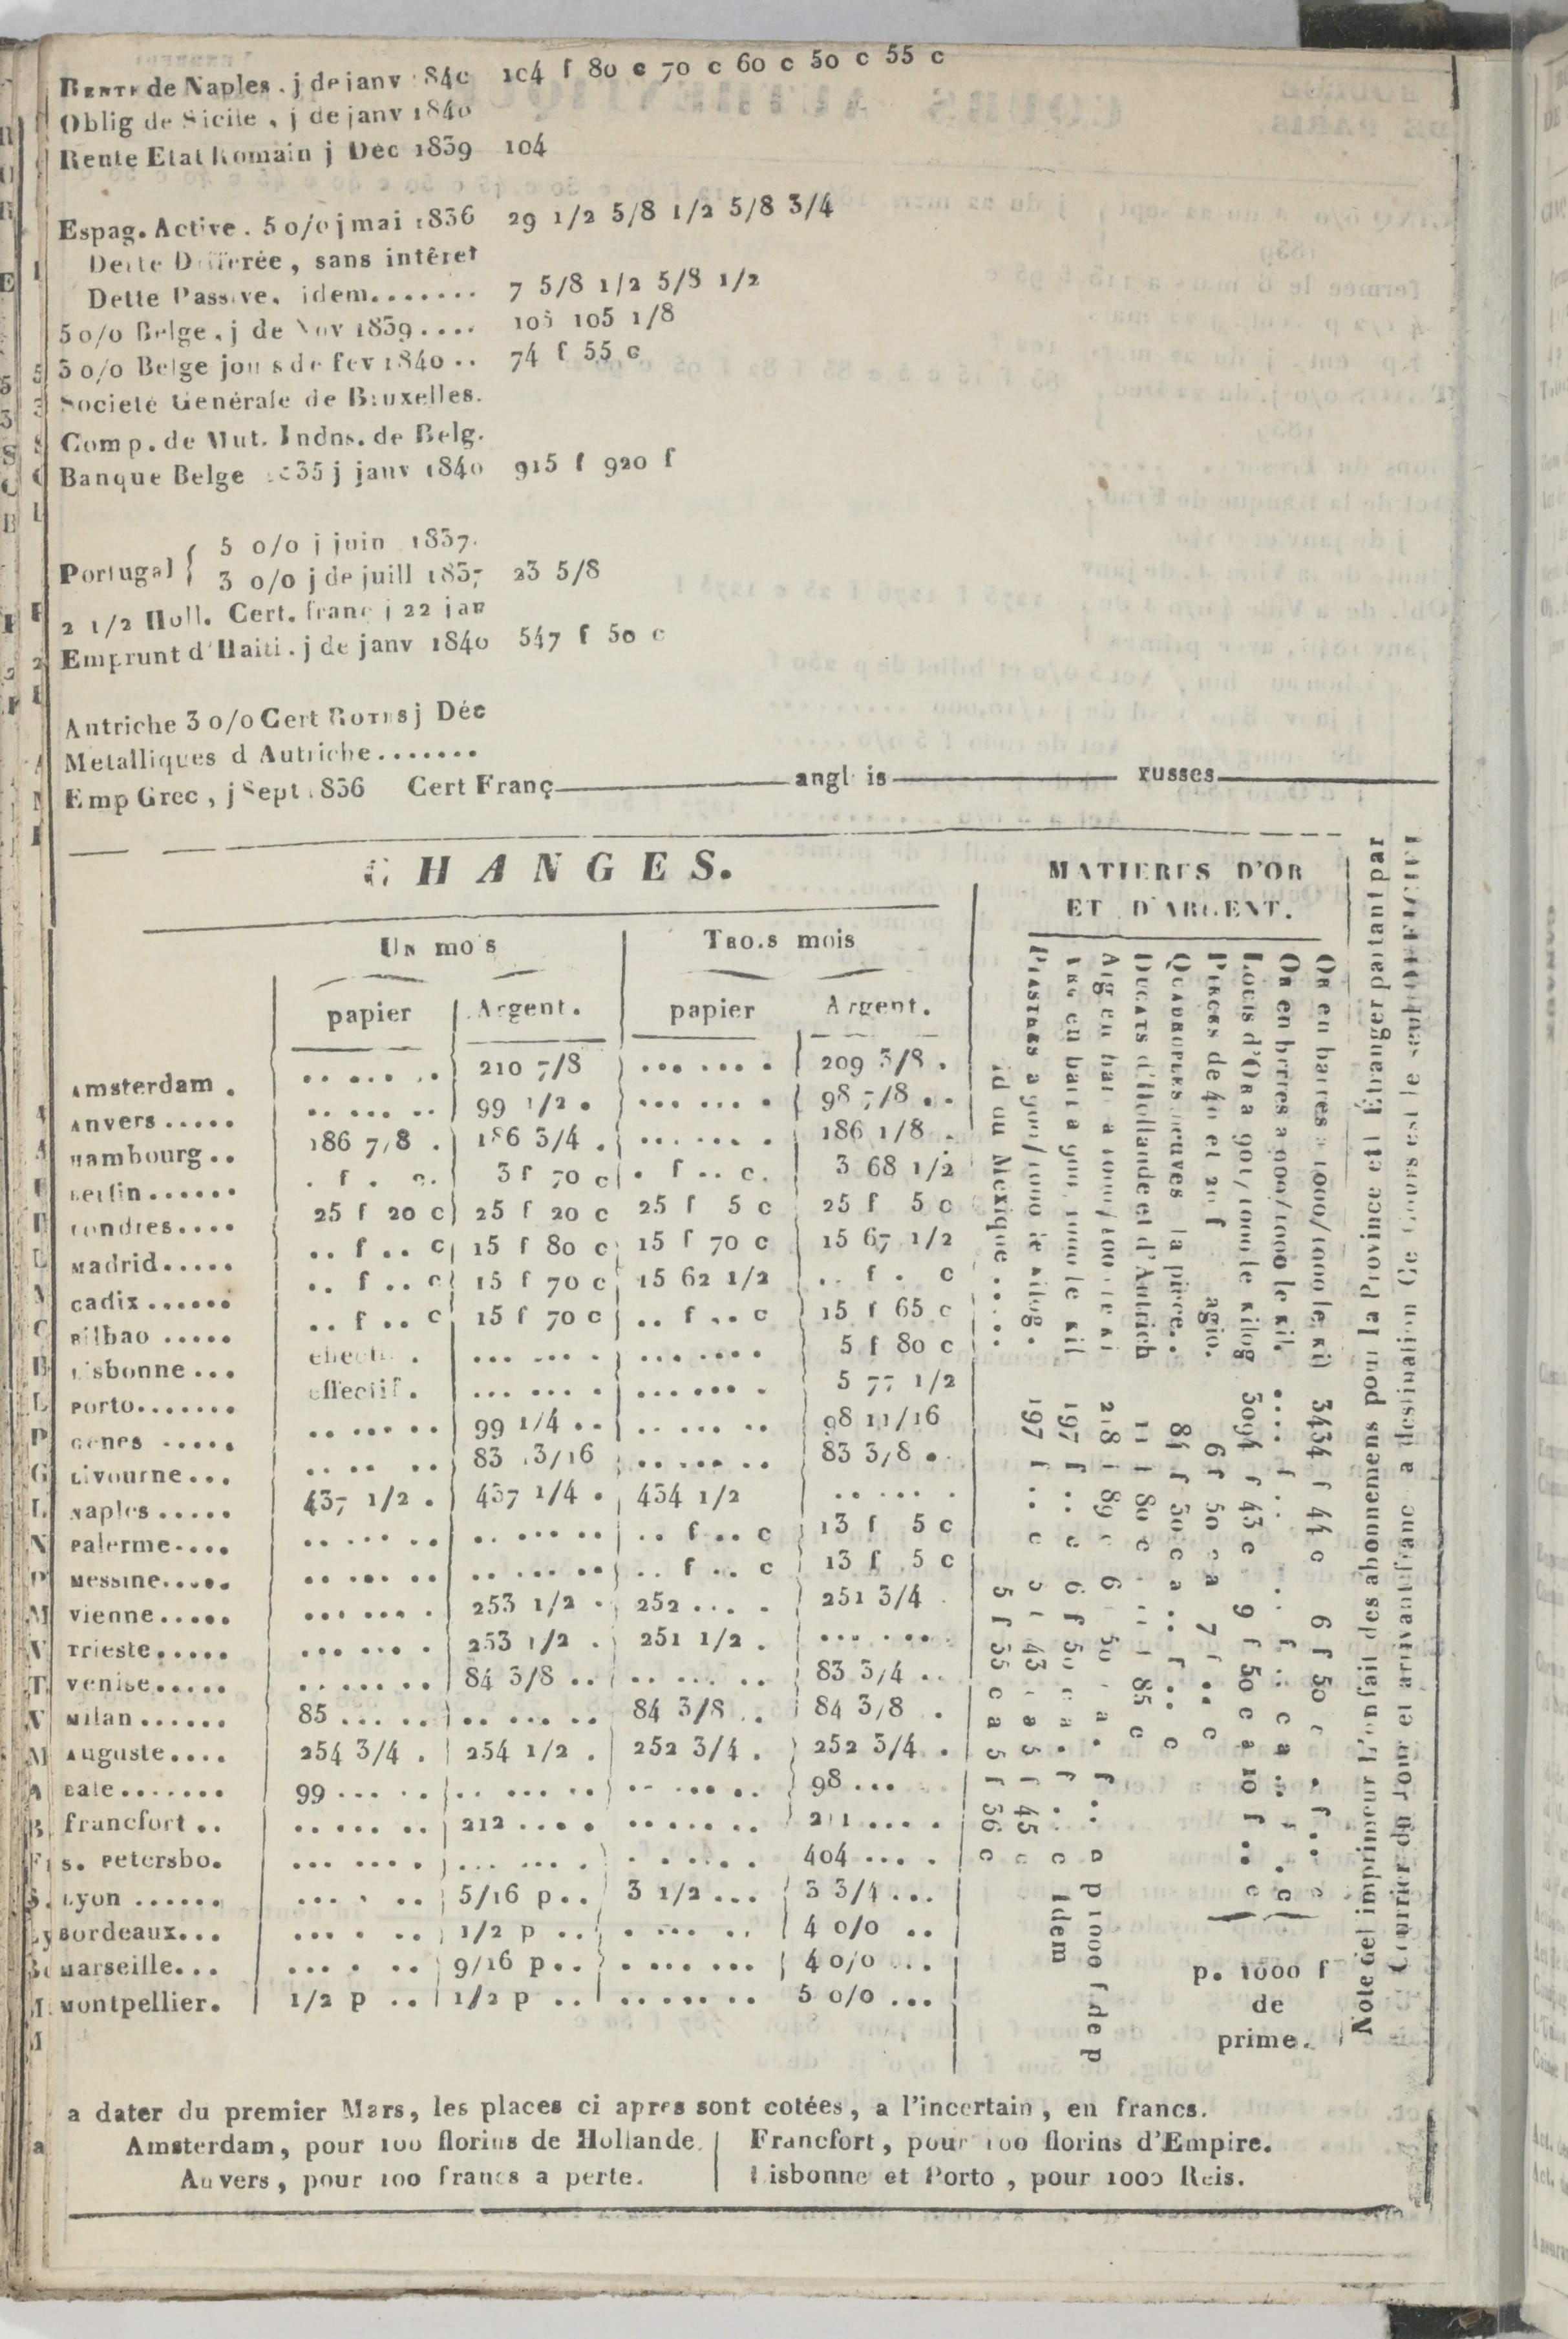 RENTE de Naples . j de janv 1840 104 f 80 c 70 c 60 c 50 c 55 c
Oblig de Sicile , j de janv 1840
Rente Etat Romain j Dec 1839 104
Espag. Active . 5 o/o j mai 1836 29 1/2 5/8 1/2 5/8 3/4
Dette Differée , sans intêret
Dette Passive. idem....... 7 5/8 1/2 5/8 1/2
5 o/o Belge , j de Nov 1839 .... 105 105 1/8
3 o/o Belge jouis de fev 1840 .. 74 f 55 c
Societé Genérale de Bruxelles.
Comp. de Mut. Indns. de Belg.
Banque Belge 1835 j janv 1840 915 f 920 f
Portugal { 5 o/o j juin 1837.
3 o/o j de juill 1837 23 5/8
2 1/2 Holl. Cert. franç j 22 jan
Emprunt d'Haiti . j de janv 1840 547 f 50 c
Autriche 3 o/o Cert ROTHS j Déc
Metalliques d Autriche.......
Emp Grec , j Sept 1836 Cert Franç anglais russes
CHANGES.
Un mois Trois mois
papier Argent. papier Argent.
Amsterdam . .. ... .. 210 7/8 ... ... . 209 3/8 .
Anvers ..... .. ... .. 99 1/2 . ... ... . 98 7/8 ..
Hambourg .. 186 7/8 . 186 3/4 . ... ... . 186 1/8 .
Berlin ...... . f . c. 3 f 70 c . f .. c. 3 68 1/2
Londres.... 25 f 20 c 25 f 20 c 25 f 5 c 25 f 5 c
Madrid..... .. f .. c 15 f 80 c 15 f 70 c 15 67 1/2
Cadix ...... .. f .. c 15 f 70 c 15 62 1/2 .. f . c
Bilbao ..... .. f .. c 15 f 70 c .. f .. c 15 f 65 c
Lisbonne ... effectif . ... ... . ... .... 5 f 80 c
Porto....... effectif . ... ... . ... ... . 5 77 1/2
Genes ..... .. ... .. 99 1/4 .. .. ... .. 98 11/16
Livourne ... .. .. .. 83 13/16 .. ... .. 83 3/8 .
Naples ..... 437 1/2 . 437 1/4 . 434 1/2 .. ... .
Palerme.... .. ... .. .. ... .. .. f .. c 13 f 5 c
Messine..... .. ... .. .. ... .. .. f .. c 13 f 5 c
Vienne ..... ... ... . 253 1/2 . 252 ... . 251 3/4 .
Trieste..... ... ... . 253 1/2 . 251 1/2 . ... ...
Venise..... .. ... .. 84 3/8 .. .. ... .. 83 3/4 ..
Milan ...... 85 ... .. .. ... .. 84 3/8 .. 84 3/8 .
Auguste.... 254 3/4 . 254 1/2 . 252 3/4 . 252 3/4 .
Bale ....... 99 ... .. .. ... .. .. ... .. 98 ...
francfort .. .. ... .. 212 .... ... ... . 211 ... .
s. Petersbo. ... ... . ... ... . . ... . 404 ... .
Lyon ...... ... . .. 5/16 p .. 3 1/2 ... 3 3/4 ...
Bordeaux... ... . .. 1/2 p .. . ... .. 4 o/o ..
Marseille... ... . .. 9/16 p .. . ... ... 4 o/o ...
Montpellier. 1/2 p .. 1/2 p .. .. ... .. 5 o/o ...
MATIERES D'OR
ET D'ARGENT.
OR en barres a 1000/1000 le kil 3434 f 44 c 6 f 50 c . f .. c
OR en barres a 900/1000 le kil. .... f .. . . f .. c a .. f . c
LOUIS d'OR a 901/1000 le kilog 3094 f 43 c 9 f 50 c a 10 f .. c
PIECES de 40 et 20 f agio. 6 f 50 c a 7 f .. c
p. 1000 f
de
prime.
QUADRUPLES neuves la piece. . 84 f 50 c a .. f .. c
DUCATS d'Hollande et d'Autrich 11 f 80 c 11 f 85 c
Arg en bar a 1000/1000 le ki 218 f 89 c 6 f 50 c a . f .. c p 1000 f. de p
ARG en barr a 900/1000 le kil 197 f .. c 6 f 50 c a . f .. c Idem
PIASTRES a 900/1000 le kilog . 197 f .. c 5 f 43 c a 5 f 45 c
id du Mexique ..... 5 f 35 c a 5 f 36 c
Note del imprimeur L'on fait des abonnemens pour la Province et l Étranger partant par
le Courrier du Jour et arrivant franc a destination Ce Cours est le seul OFFICIEL
a dater du premier Mars, les places ci apres sont cotées, a l'incertain, en francs.
Amsterdam, pour 100 florins de Hollande. Francfort, pour 100 florins d'Empire.
Anvers, pour 100 francs a perte. Lisbonne et Porto, pour 1000 Reis.